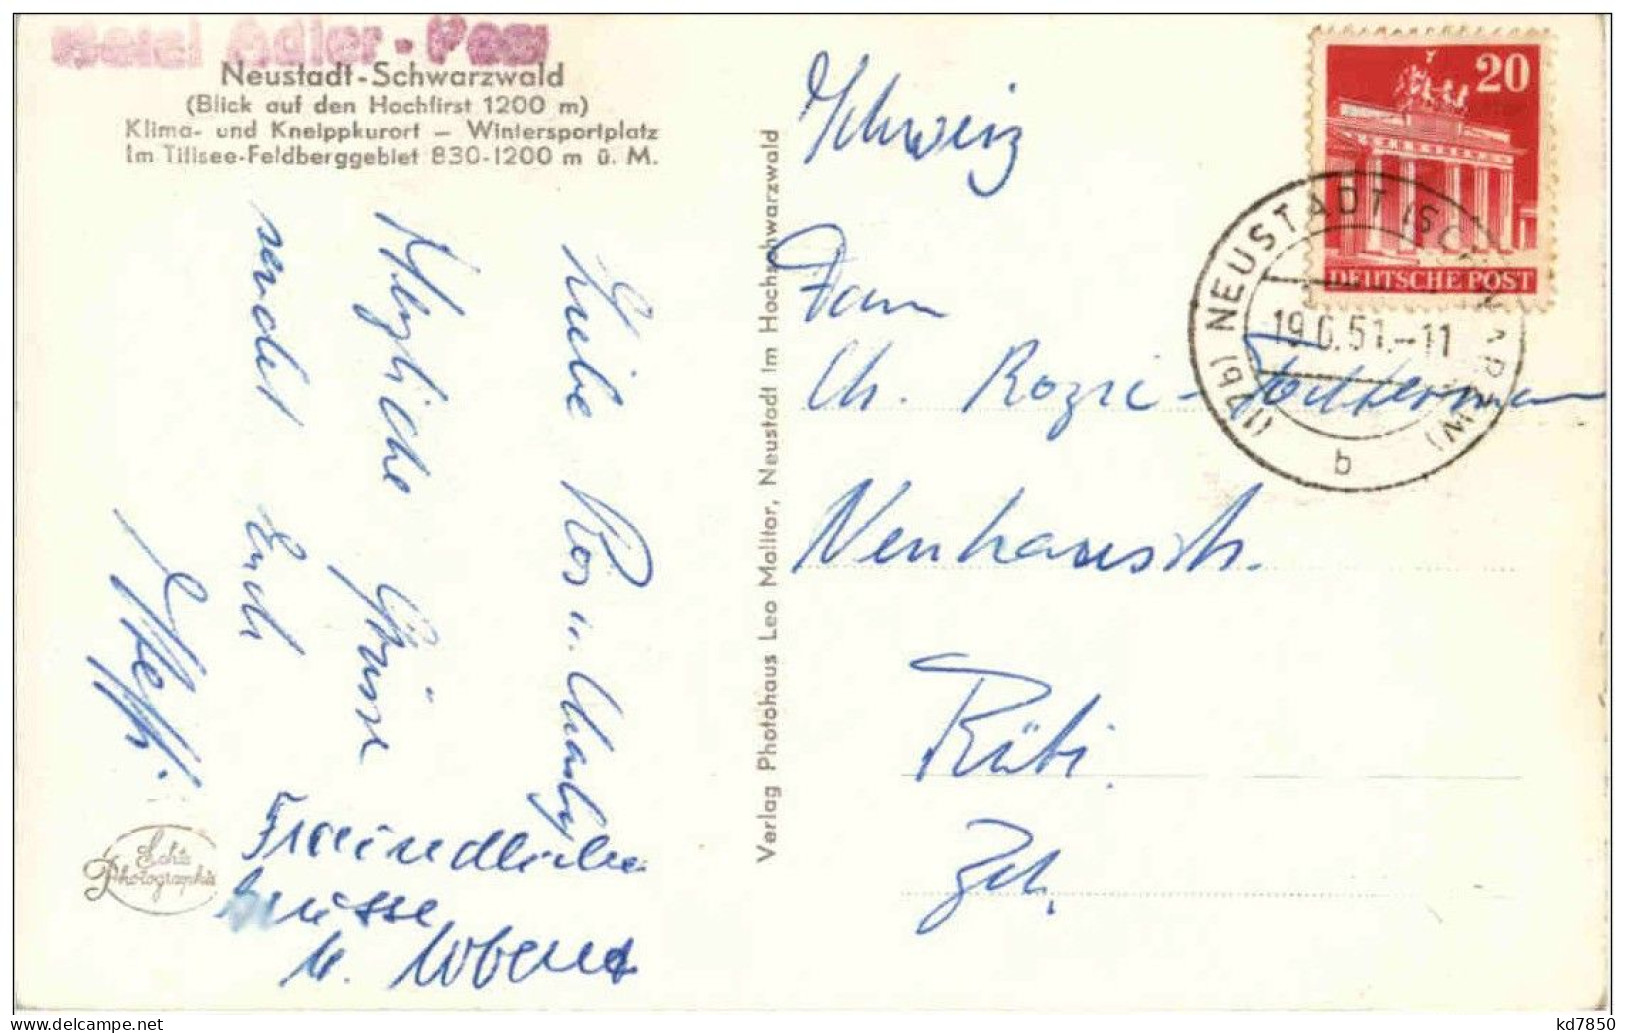 Hotel Adler-Post
Neustadt-Schwarzwald
(Blick auf den Hochfirst 1200 m)
Klima- und Kneippkurort – Wintersportplatz
im Titisee-Feldberggebiet 830-1200 m ü. M.
Liebe Ros
Herzliche Grüsse
sendet Euch
Steffi.
Freundliche
Grüsse
Echte
Photographie
Verlag Photohaus Leo Mollitor, Neustadt im Hochschwarzwald
Schweiz
Fam
Ch. Rozic-
Neuhausstr.
Rüti.
Zch.
20
DEUTSCHE POST
(17b) NEUSTADT (SCHWARZW)
19.6.51.-11
b
kd7850